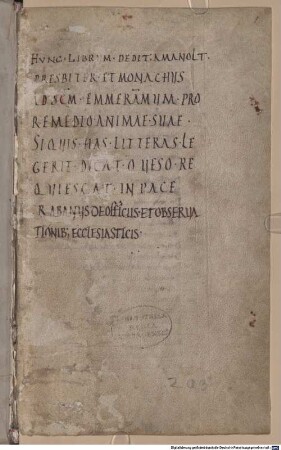 HUNC · LIBRUM · DEDIT · AMANOLT ·
PRESBITER · ET MONACHUS
AD · SCM̄ · EMMERĀMUM · PRO
REMEDIO ANIMAE · SUAE ·
SI QUIS · HAS · LITTERAS · LE
GERIT · DICAT · QUESO · RE
QUIESCAT · IN PACE
RABANUS DE OFFICIIS · ET OBSERUA
TIONIB; ECCLESIASTICIS ·